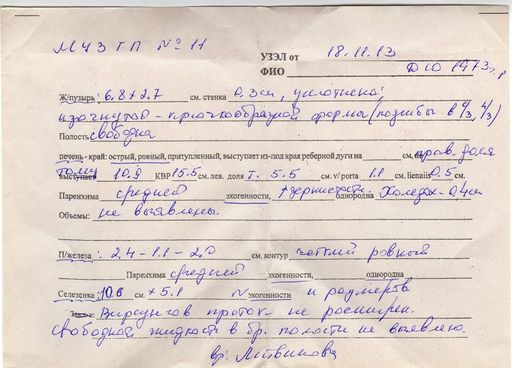 МУЗ ГП № 11
УЗЭЛ от 18.11.13
ФИО Ф Ю 1973 г.р
Ж/пузырь: 6.8 × 2.7 см. стенка 0.3 см, уплотнена;
изогнутой - крючкообразной формы (изгибы в с/3, н/3)
Полость свободна
печень - край: острый, ровный, притупленный, выступает из-под края реберной дуги на см. прав. доля
выступает 10.9 КВР 15.5 см. лев. доля т. 5.5 см. v/ porta 1.1 см. lienalis 0.5 см.
Паренхима средней эхогенности, + зернистость однородна Холедох - 0,4 см
Объемы: не выявлены.
П/железа: 2,4 - 1.1 - 2.0 см. контур четкий ровный
Паренхима средней эхогенности, однородна
Селезенка: 10.6 см × 5.1 N эхогенности и размеров
Закл-е: Вирсунгов проток не расширен.
Свободной жидкости в бр. полости не выявлено
вр: Литвинова